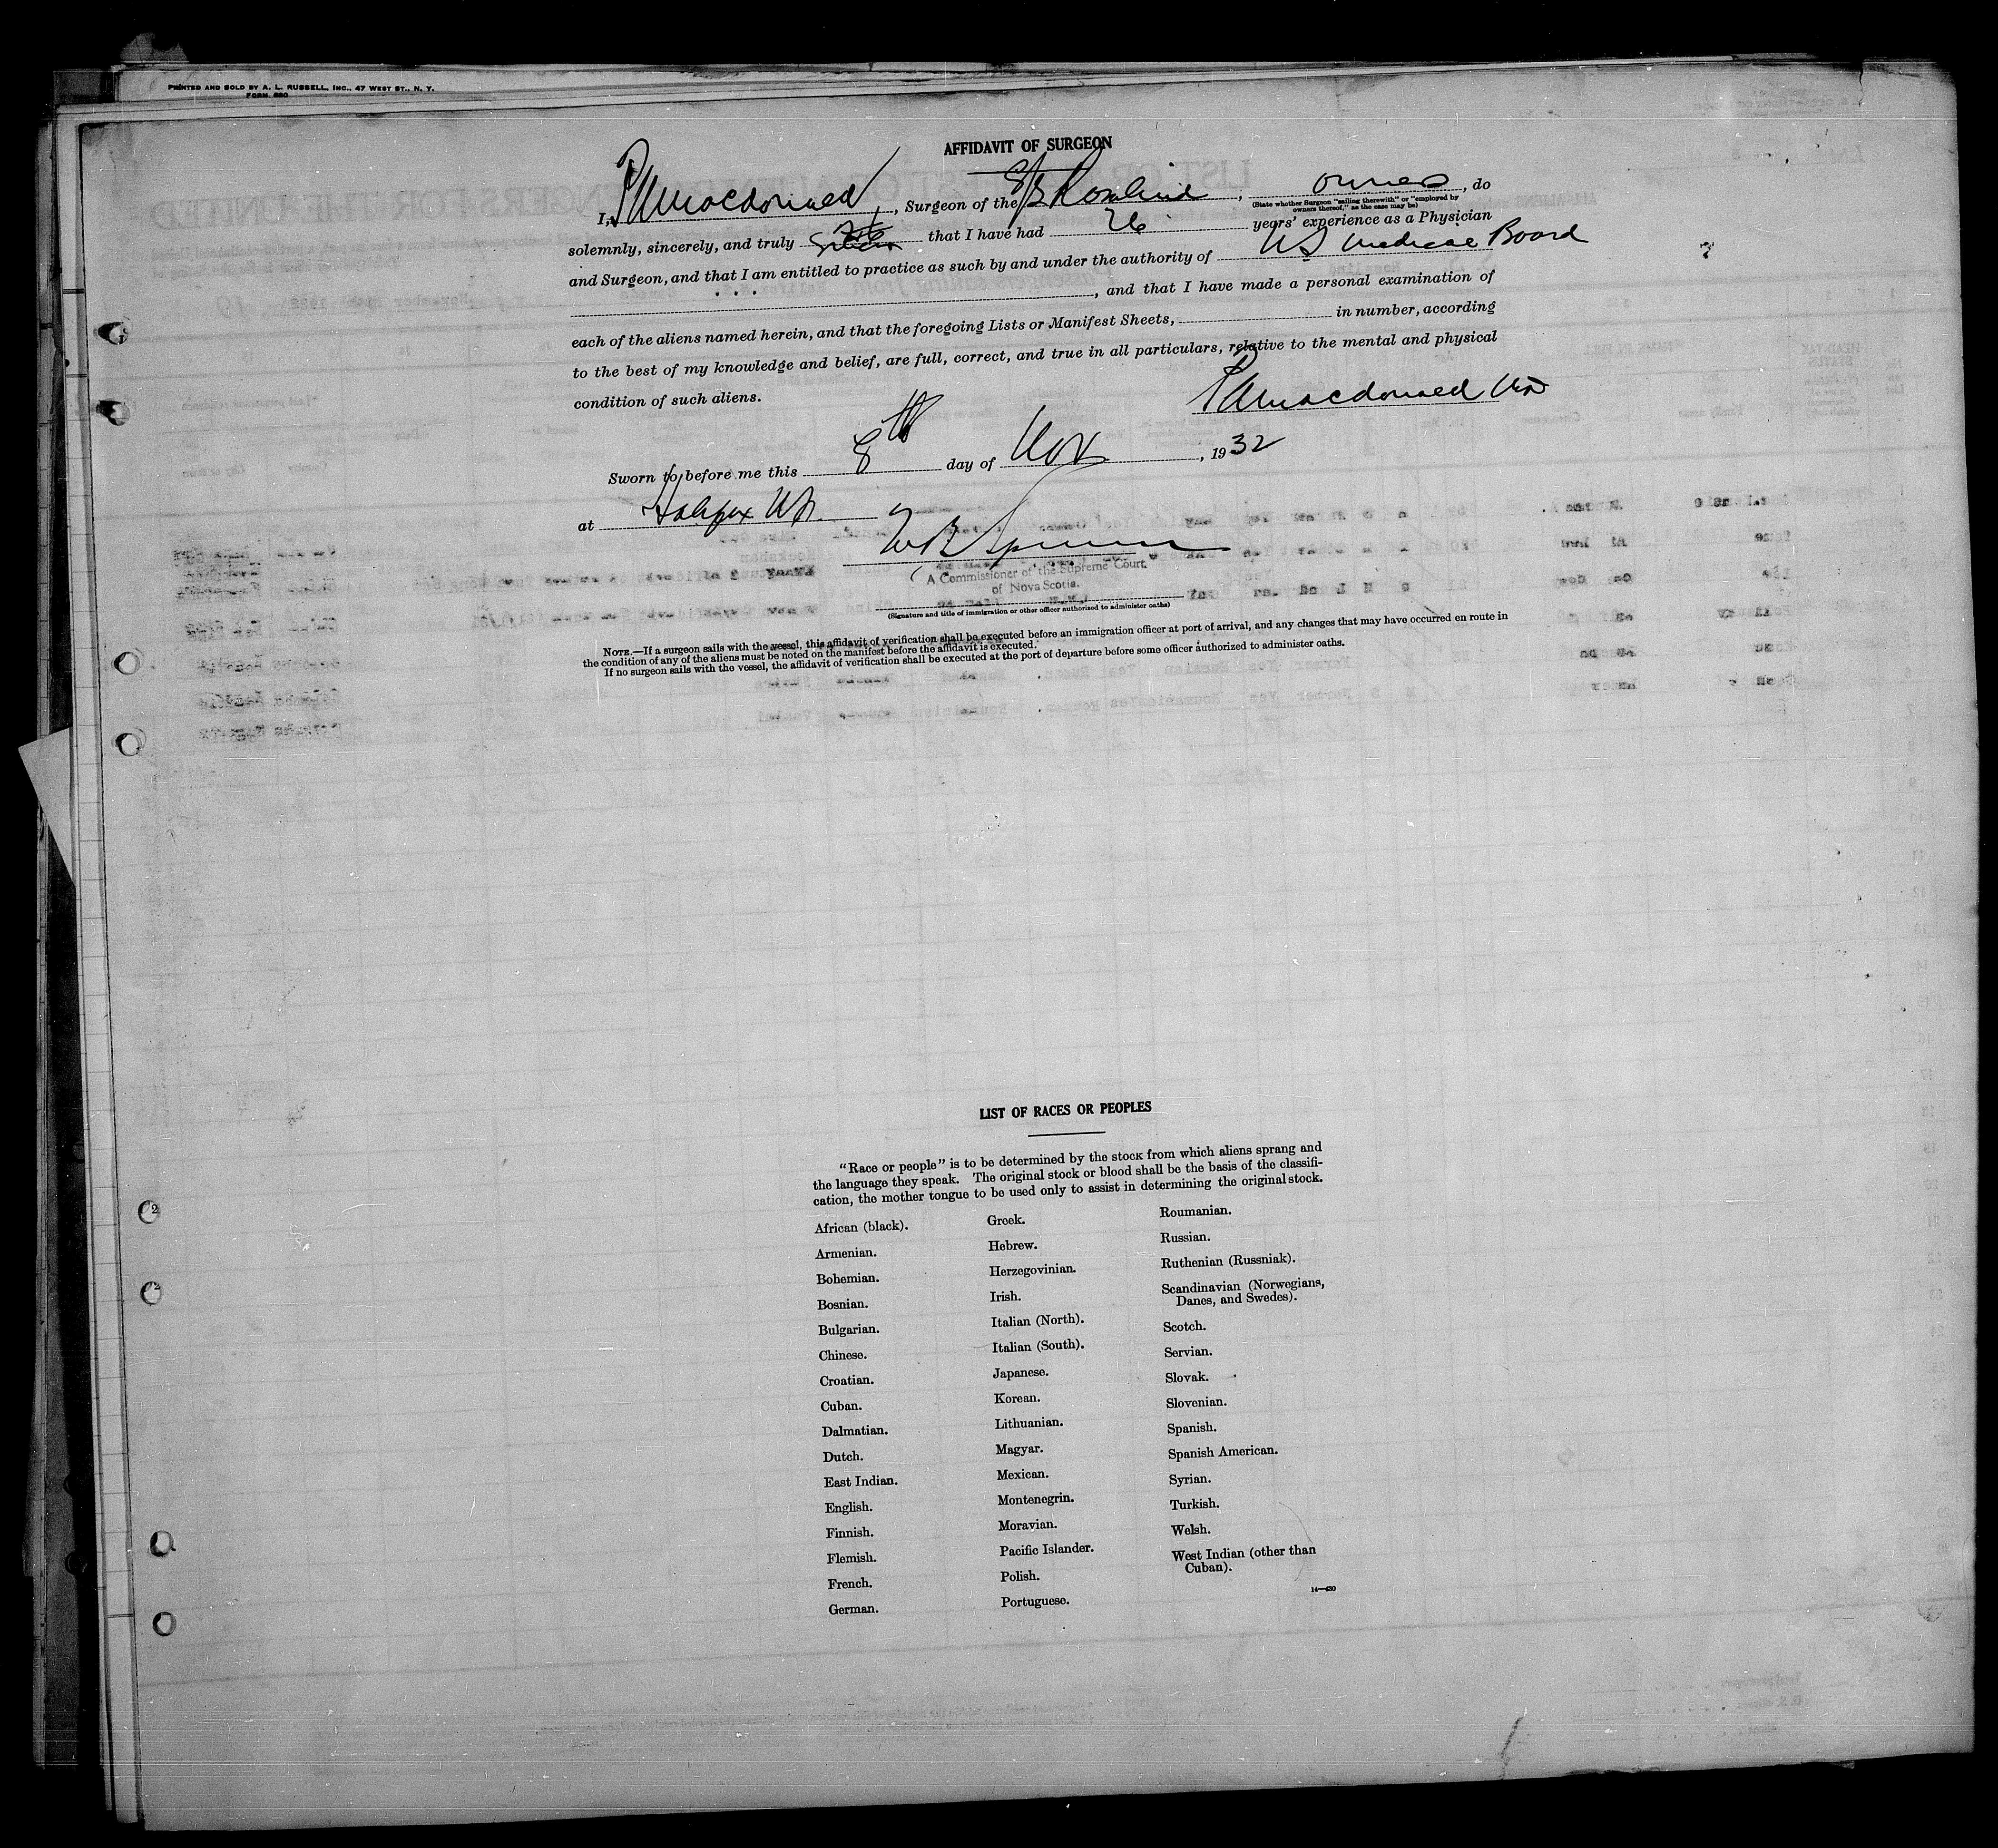 PRINTED AND SOLD BY A. L. RUSSELL, INC., 47 WEST ST., N. Y.
FORM 680
AFFIDAVIT OF SURGEON
I, P A Macdonald, Surgeon of the S/S Rosalind, owners, do
(State whether Surgeon "sailing therewith" or "employed by
owners thereof," as the case may be)
solemnly, sincerely, and truly that I have had 26 years' experience as a Physician
and Surgeon, and that I am entitled to practice as such by and under the authority of NS Medical Board
, and that I have made a personal examination of
each of the aliens named herein, and that the foregoing Lists or Manifest Sheets, in number, according
to the best of my knowledge and belief, are full, correct, and true in all particulars, relative to the mental and physical
condition of such aliens.
P A Macdonald MD
Sworn to before me this 8th day of Nov, 1932
at Halifax NS.
A Commissioner of the Supreme Court
of Nova Scotia.
(Signature and title of immigration or other officer authorized to administer oaths)
NOTE.—If a surgeon sails with the vessel, this affidavit of verification shall be executed before an immigration officer at port of arrival, and any changes that may have occurred en route in
the condition of any of the aliens must be noted on the manifest before the affidavit is executed.
If no surgeon sails with the vessel, the affidavit of verification shall be executed at the port of departure before some officer authorized to administer oaths.
LIST OF RACES OR PEOPLES
"Race or people" is to be determined by the stock from which aliens sprang and
the language they speak. The original stock or blood shall be the basis of the classifi-
cation, the mother tongue to be used only to assist in determining the original stock.
African (black).
Armenian.
Bohemian.
Bosnian.
Bulgarian.
Chinese.
Croatian.
Cuban.
Dalmatian.
Dutch.
East Indian.
English.
Finnish.
Flemish.
French.
German.
Greek.
Hebrew.
Herzegovinian.
Irish.
Italian (North).
Italian (South).
Japanese.
Korean.
Lithuanian.
Magyar.
Mexican.
Montenegrin.
Moravian.
Pacific Islander.
Polish.
Portuguese.
Roumanian.
Russian.
Ruthenian (Russniak).
Scandinavian (Norwegians,
Danes, and Swedes).
Scotch.
Servian.
Slovak.
Slovenian.
Spanish.
Spanish American.
Syrian.
Turkish.
Welsh.
West Indian (other than
Cuban).